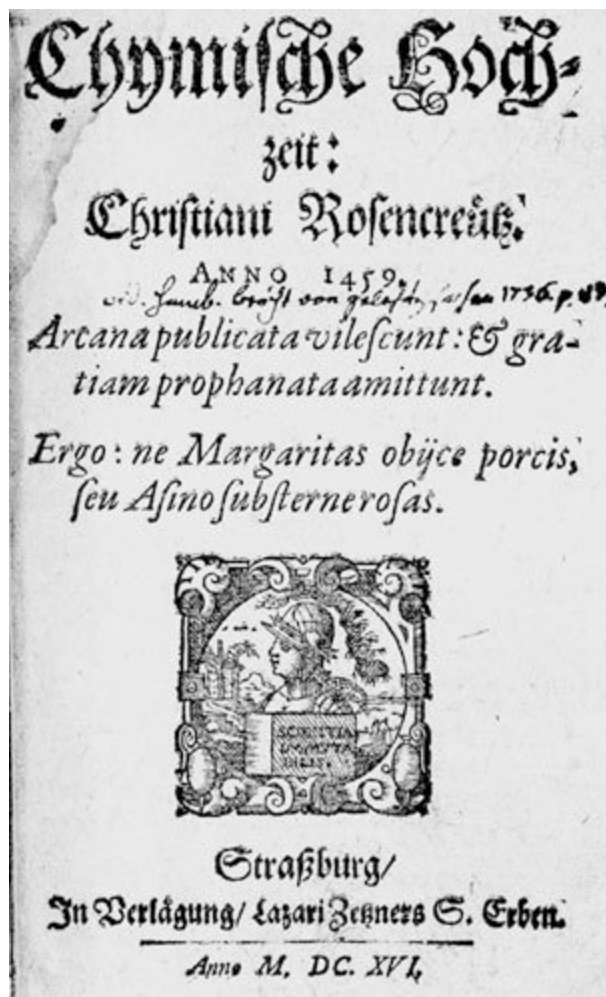 Chymische Hoch-
zeit:
Christiani Rosencreütz.
ANNO 1459.
von 1736. p.
Arcana publicata vilescunt: & gra-
tiam prophanata amittunt.
Ergo: ne Margaritas obijce porcis,
seu Asino substerne rosas.
SCIENTIA
IMMUTA
BILIS.
Straßburg/
In Verlägung/ Lazari Zetzners S. Erben.
Anno M. DC. XVI.